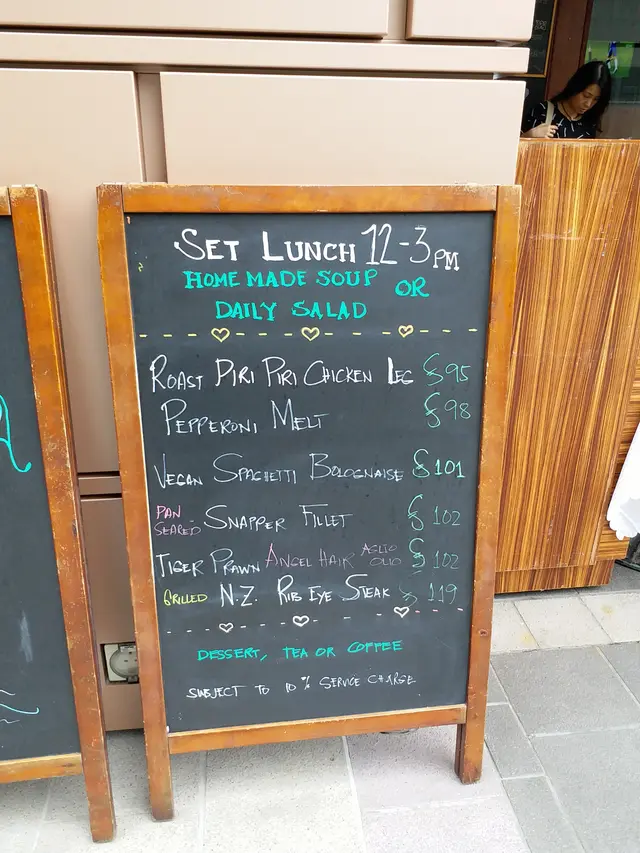 SET LUNCH 12-3 PM
HOME MADE SOUP OR
DAILY SALAD
ROAST PIRI PIRI CHICKEN LEG $95
PEPPERONI MELT $98
VEGAN SPAGHETTI BOLOGNAISE $101
PAN SEARED SNAPPER FILLET $102
TIGER PRAWN ANGEL HAIR AGLIO OLIO $102
GRILLED N.Z. RIB EYE STEAK $119
DESSERT, TEA OR COFFEE
SUBJECT TO 10% SERVICE CHARGE